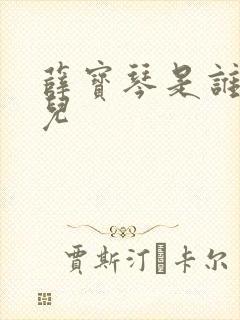 薛寳琴是誰
兒
賈斯汀·卡尔